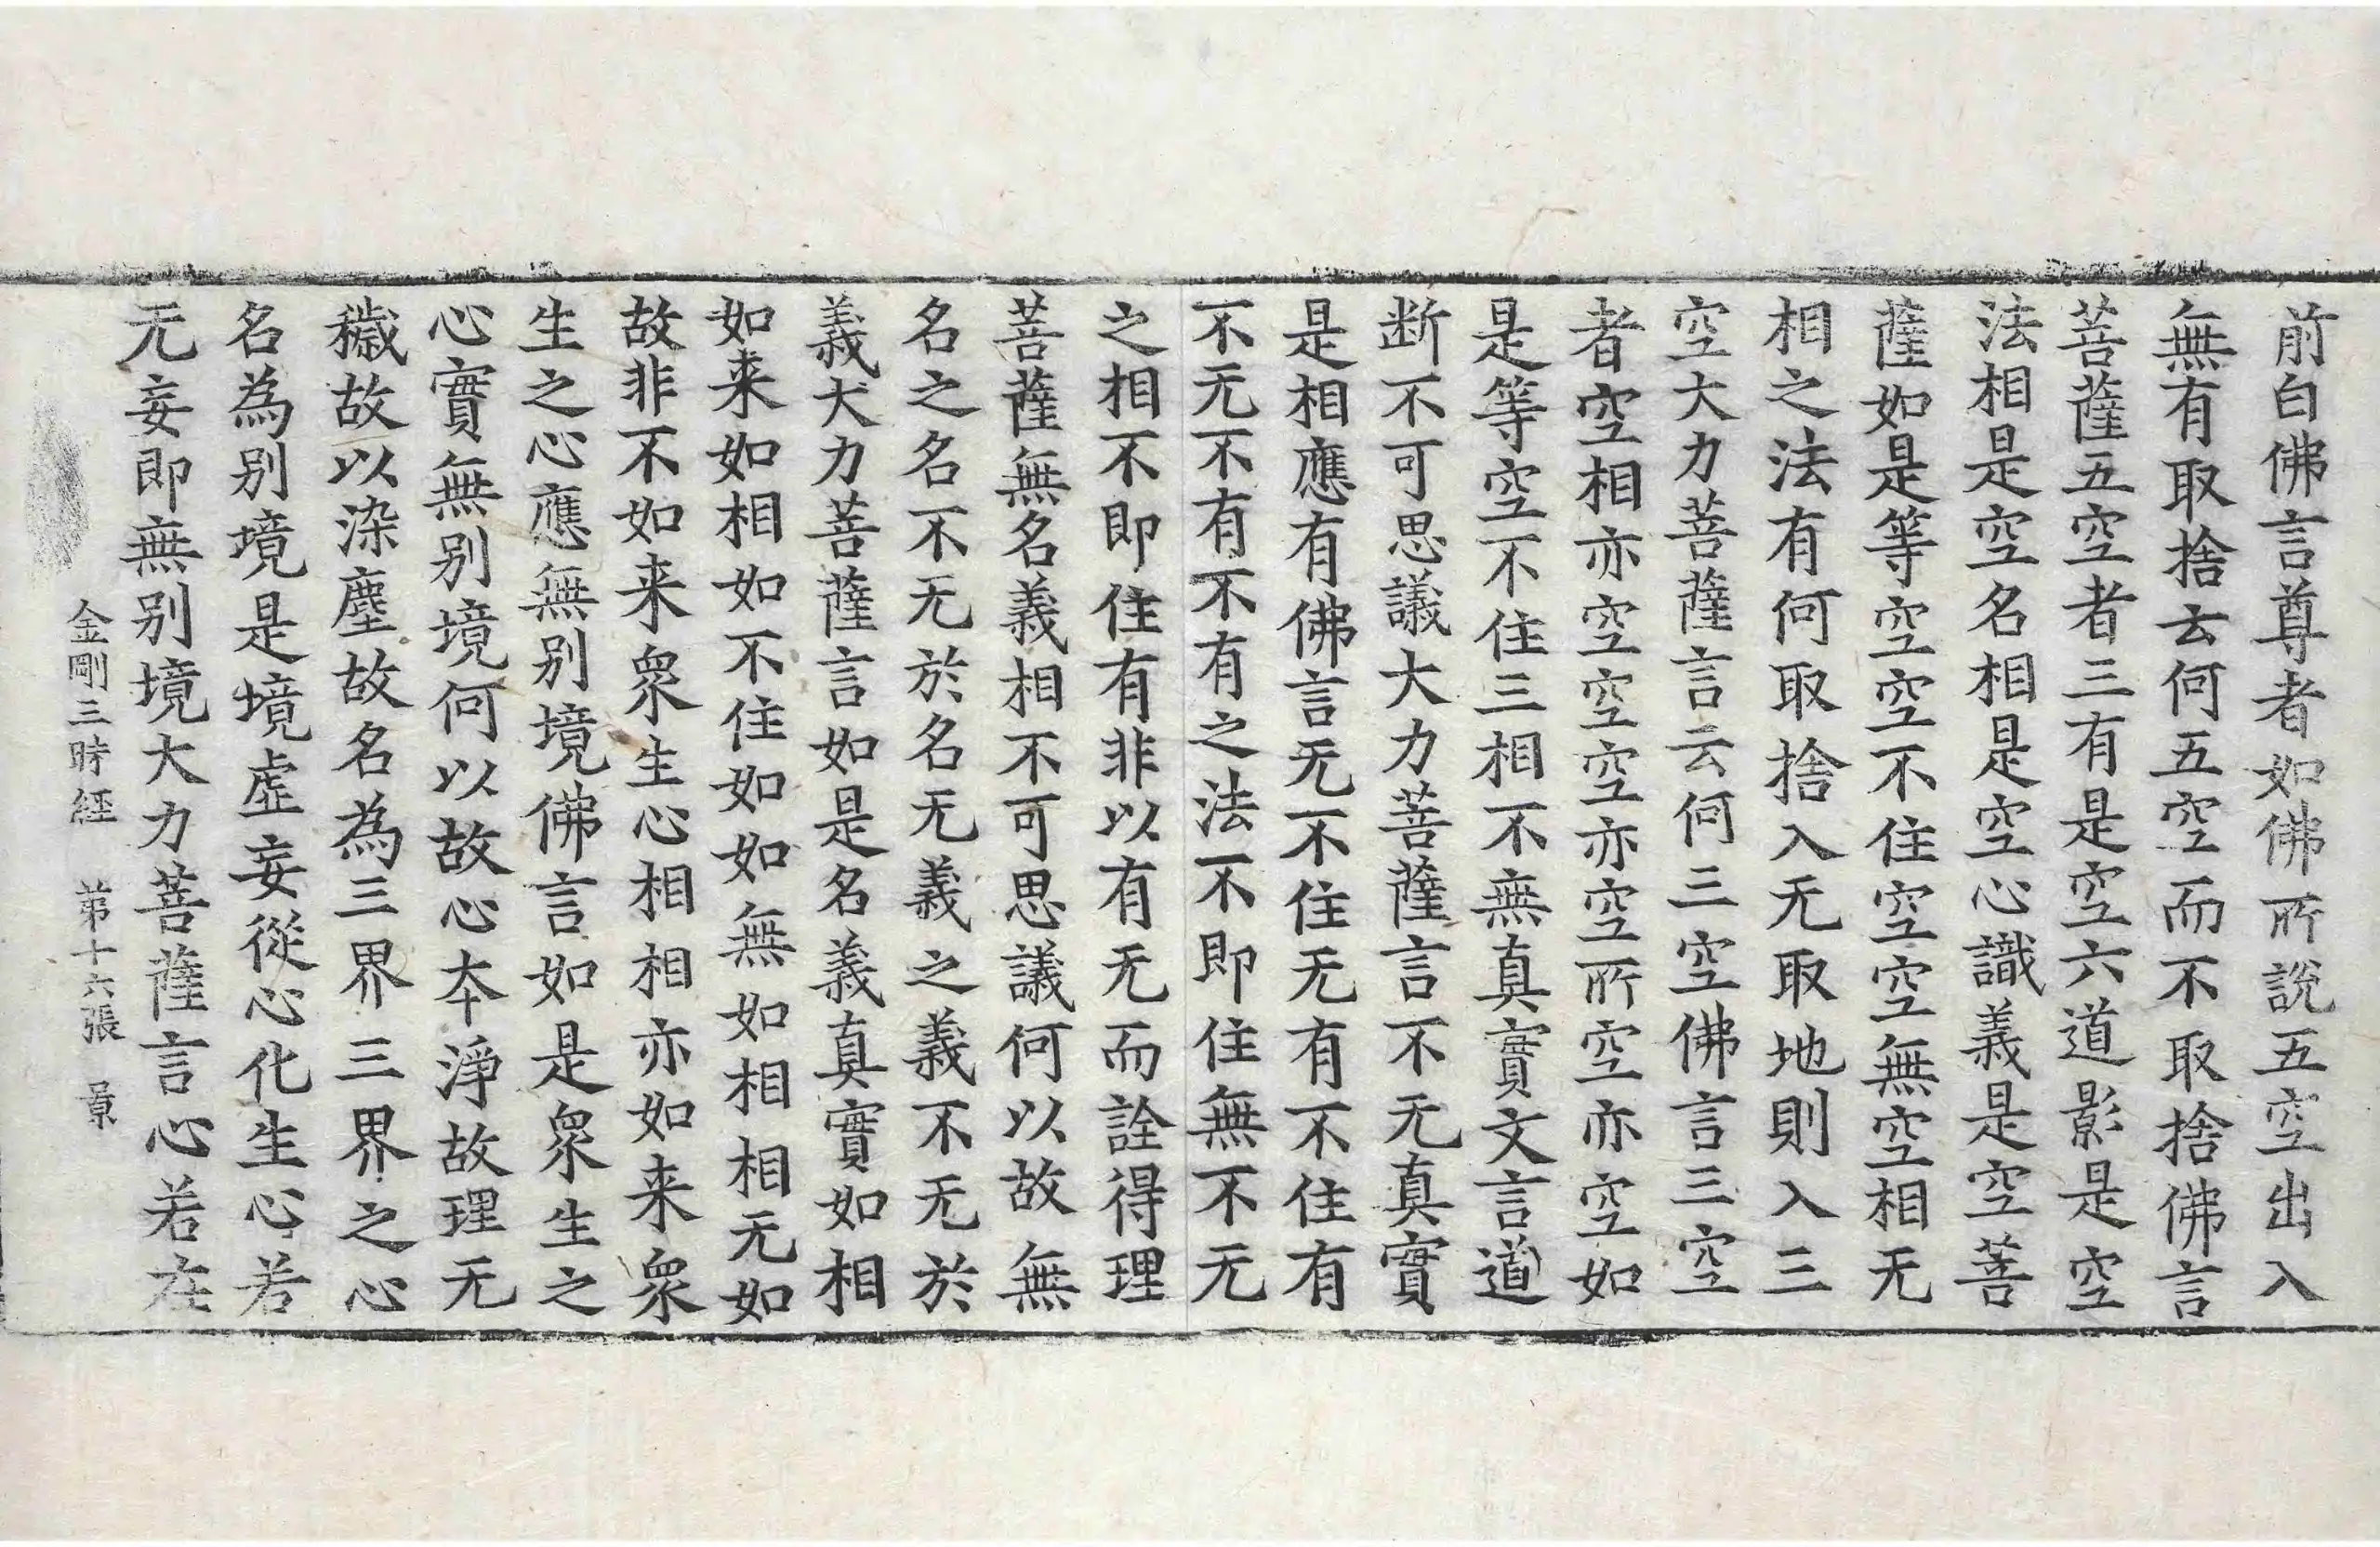 前白佛言尊者如佛所說五空出入
無有取捨去何五空而不取捨佛言
菩薩五空者三有是空六道影是空
法相是空名相是空心識義是空菩
薩如是等空空不住空空無空相无
相之法有何取捨入无取地則入三
空大力菩薩言云何三空佛言三空
者空相亦空空空亦空所空亦空如
是等空不住三相不無真實文言道
断不可思議大力菩薩言不无真實
是相應有佛言无不住无有不住有
不无不有不有之法不即住無不无
之相不即住有非以有无而詮得理
菩薩無名義相不可思議何以故無
名之名不无於名无義之義不无於
義大力菩薩言如是名義真實如相
如来如相如不住如如無如相相无如
故非不如来衆生心相相亦如来衆
生之心應無别境佛言如是衆生之
心實無别境何以故心夲淨故理无
穢故以染塵故名為三界三界之心
名為别境是境虛妄從心化生心若
无妄即無别境大力菩薩言心若在
金剛三時經 苐十六張 景